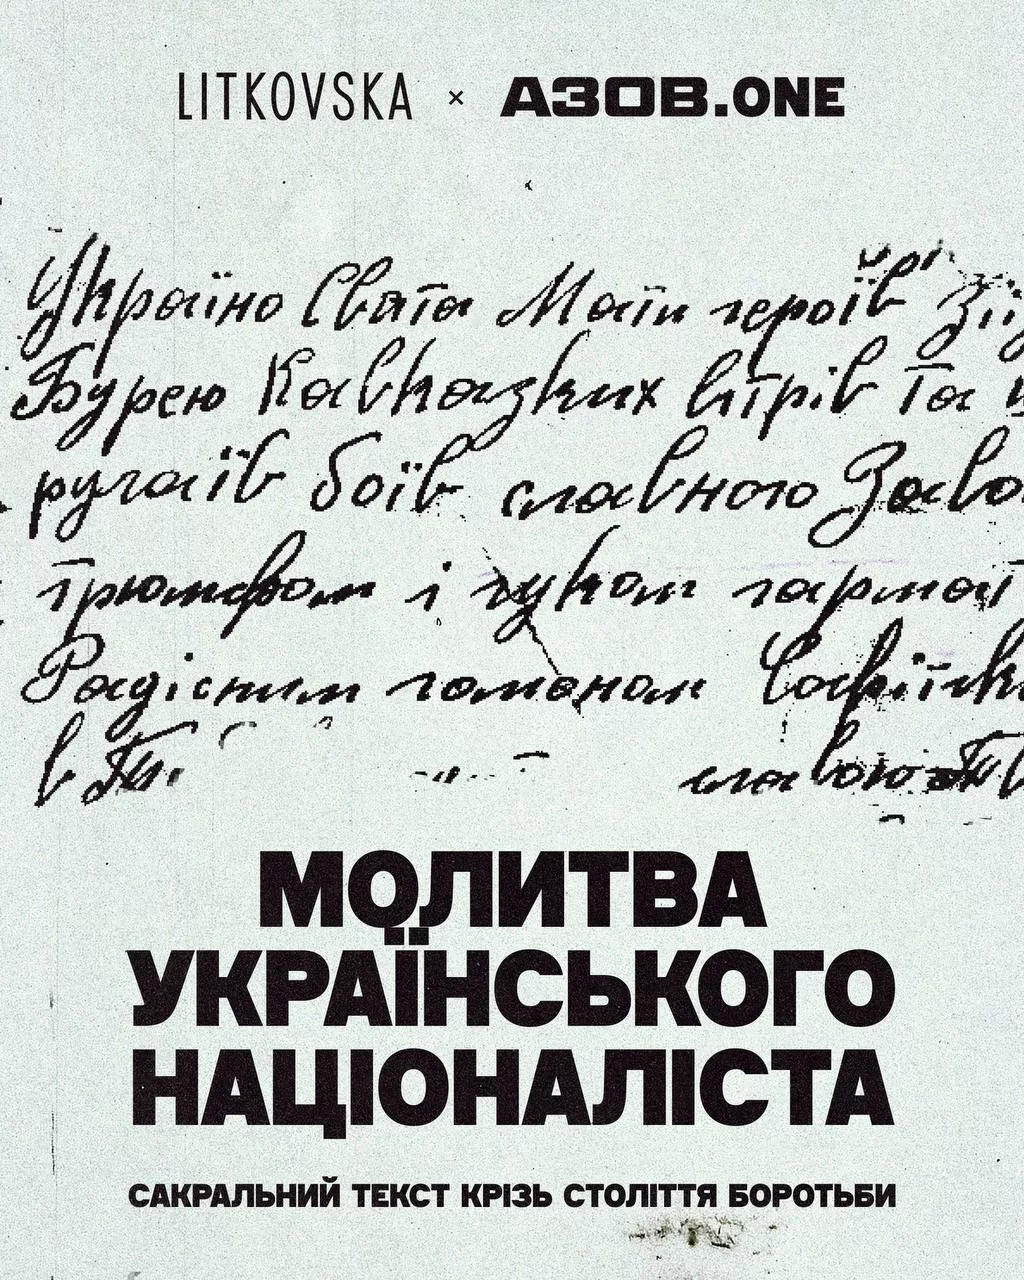 LITKOVSKA × АЗОВ.ONE
Україно Свята Мати героїв
Бурею Кавказких вітрів та
ругаїв боїв славного
трюмфом і гуком гармат
Радісним гомоном
в
славою
МОЛИТВА
УКРАЇНСЬКОГО
НАЦІОНАЛІСТА
САКРАЛЬНИЙ ТЕКСТ КРІЗЬ СТОЛІТТЯ БОРОТЬБИ